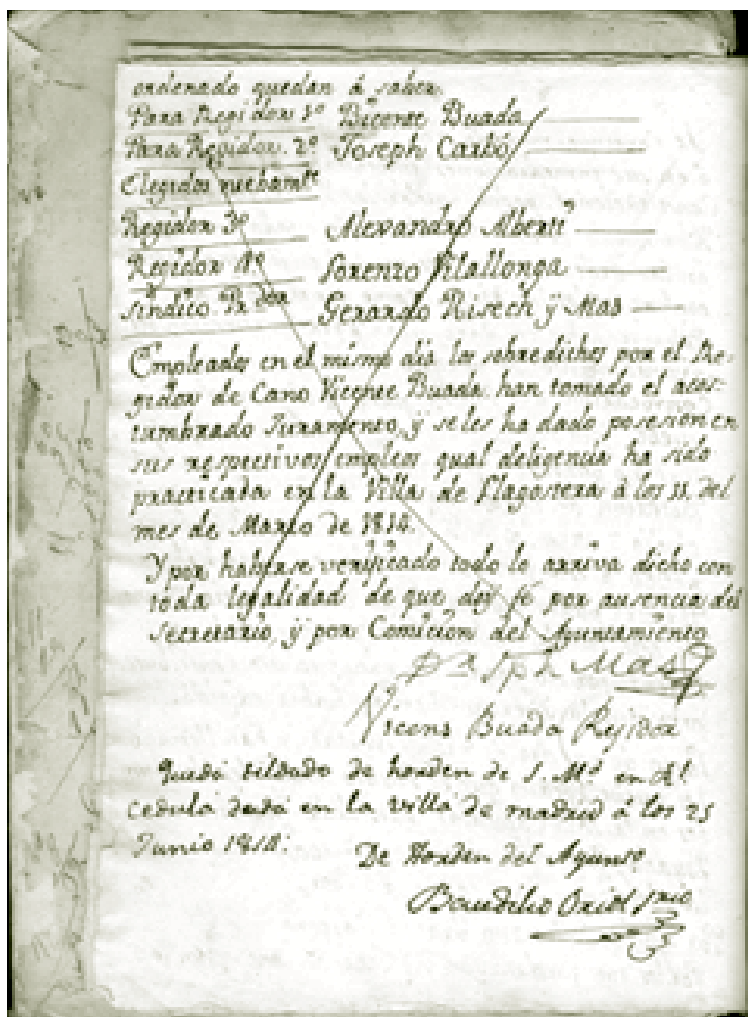 ordenado quedan á saber.
Para Regidor 1º Bicente Buada
Para Regidor 2º Joseph Carbó
Elegidos nuebamte
Regidor 3º Alexandro Alberti
Regidor 4º Lorenzo Vilallonga
Sindico Pr dor Gerardo Risech ÿ Mas
Empleados en el mismo dia los sobredichos por el Re-
gidor de Cano Vicente Buada han tomado el acos-
tumbrado Juramento, ÿ se les ha dado posesion en
sus respectivos empleos qual deligencia ha sido
practicada en la Villa de Llagostera á los 11 del
mes de Marzo de 1818.
Y por haberse verificado todo lo arriva dicho con
toda legalidad de que doÿ fé por ausencia del
Secretario, ÿ por Comicion del Ayuntamiento
Jph Mas
Vicens Buada Rejidor
Queda tildado de horden de S. Md. en Rl.
cedula dada en la villa de madrid á los 25
Junio 1818.
De Horden del Ayunto
Baudilio Oriol Srio